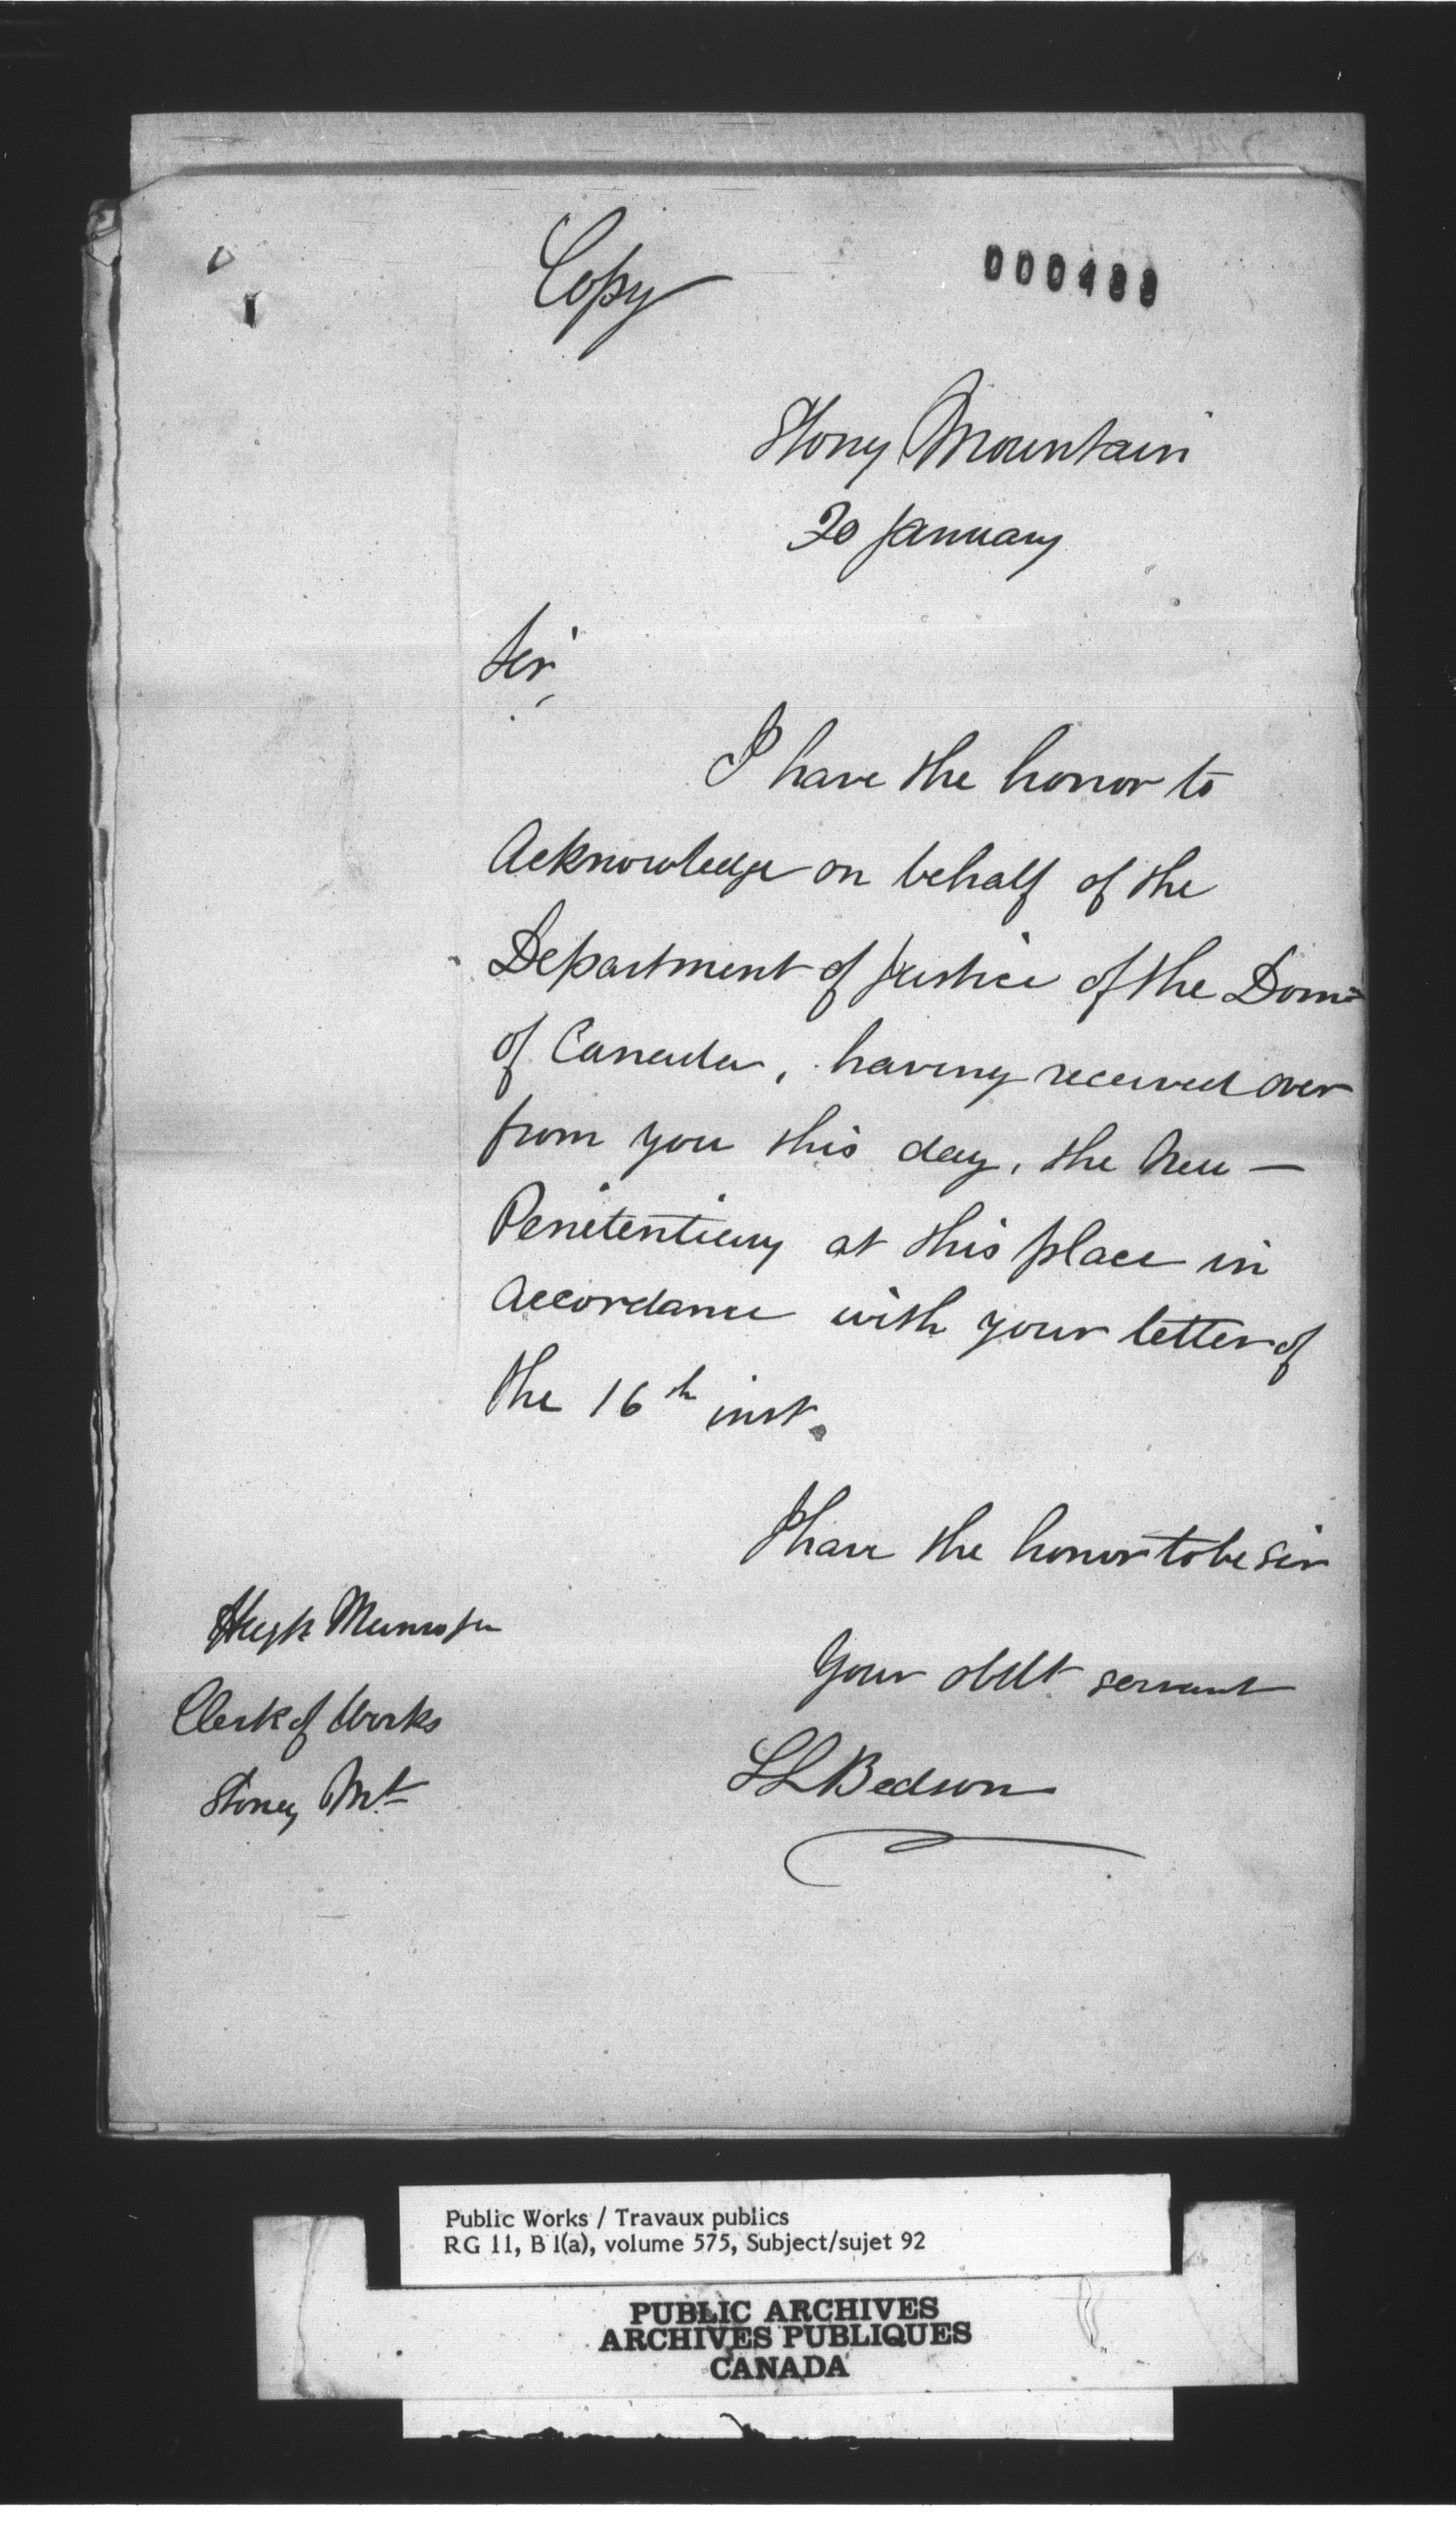 Copy
000488
Stony Mountain
20 January
Sir,
I have the honor to
Acknowledge on behalf of the
Department of Justice of the Domn
of Canada, having received over
from you this day, the New —
Penitentiary at this place in
accordance with your letter of
the 16th inst.
I have the honor to be Sir
Your obdt servant
SLBedson
Hugh Munro
Clerk of Works
Stoney Mt
Public Works / Travaux publics
RG 11, B 1(a), volume 575, Subject/sujet 92
PUBLIC ARCHIVES
ARCHIVES PUBLIQUES
CANADA